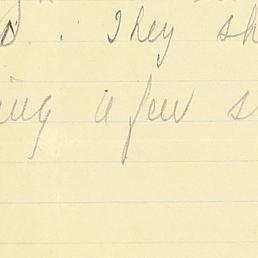 . They sh
ing a few s